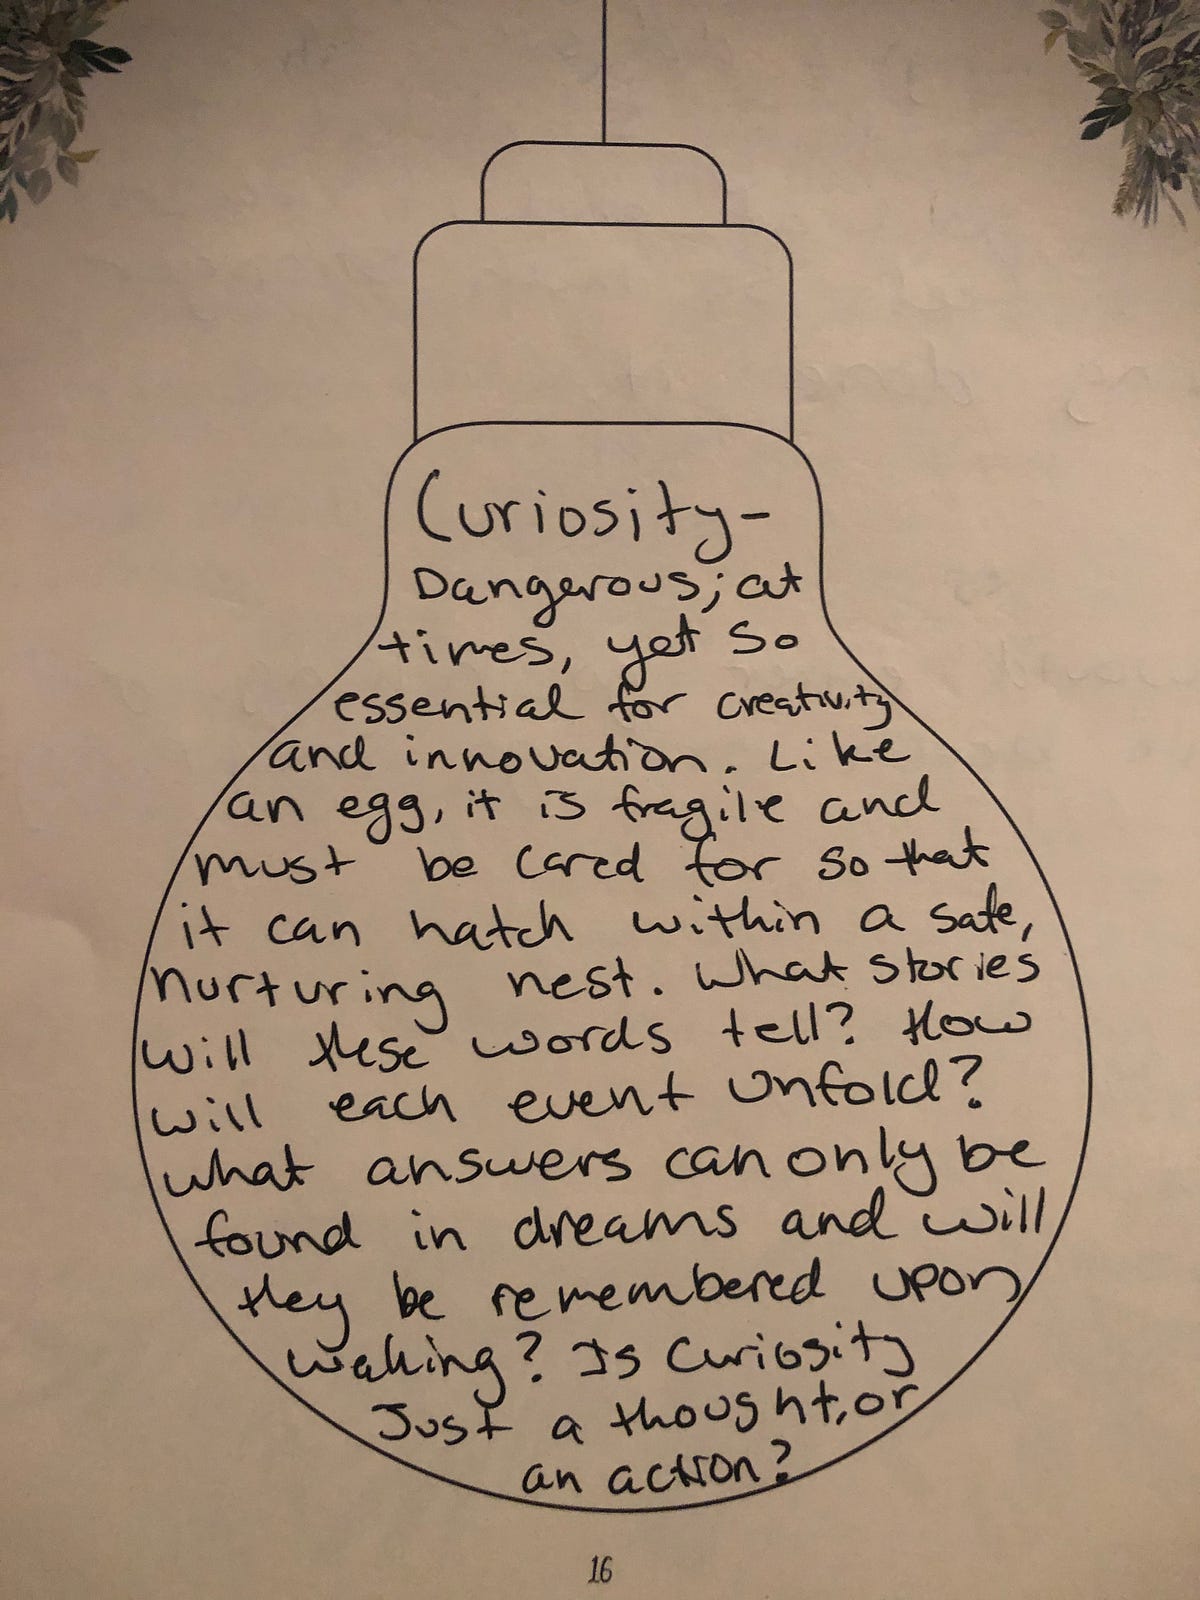 Curiosity-
Dangerous; at
times, yet so
essential for creativity
and innovation. Like
an egg, it is fragile and
must be cared for so that
it can hatch within a safe,
nurturing nest. What stories
will these words tell? How
will each event unfold?
what answers can only be
found in dreams and will
they be remembered upon
waking? Is Curiosity
Just a thought, or
an action?
16